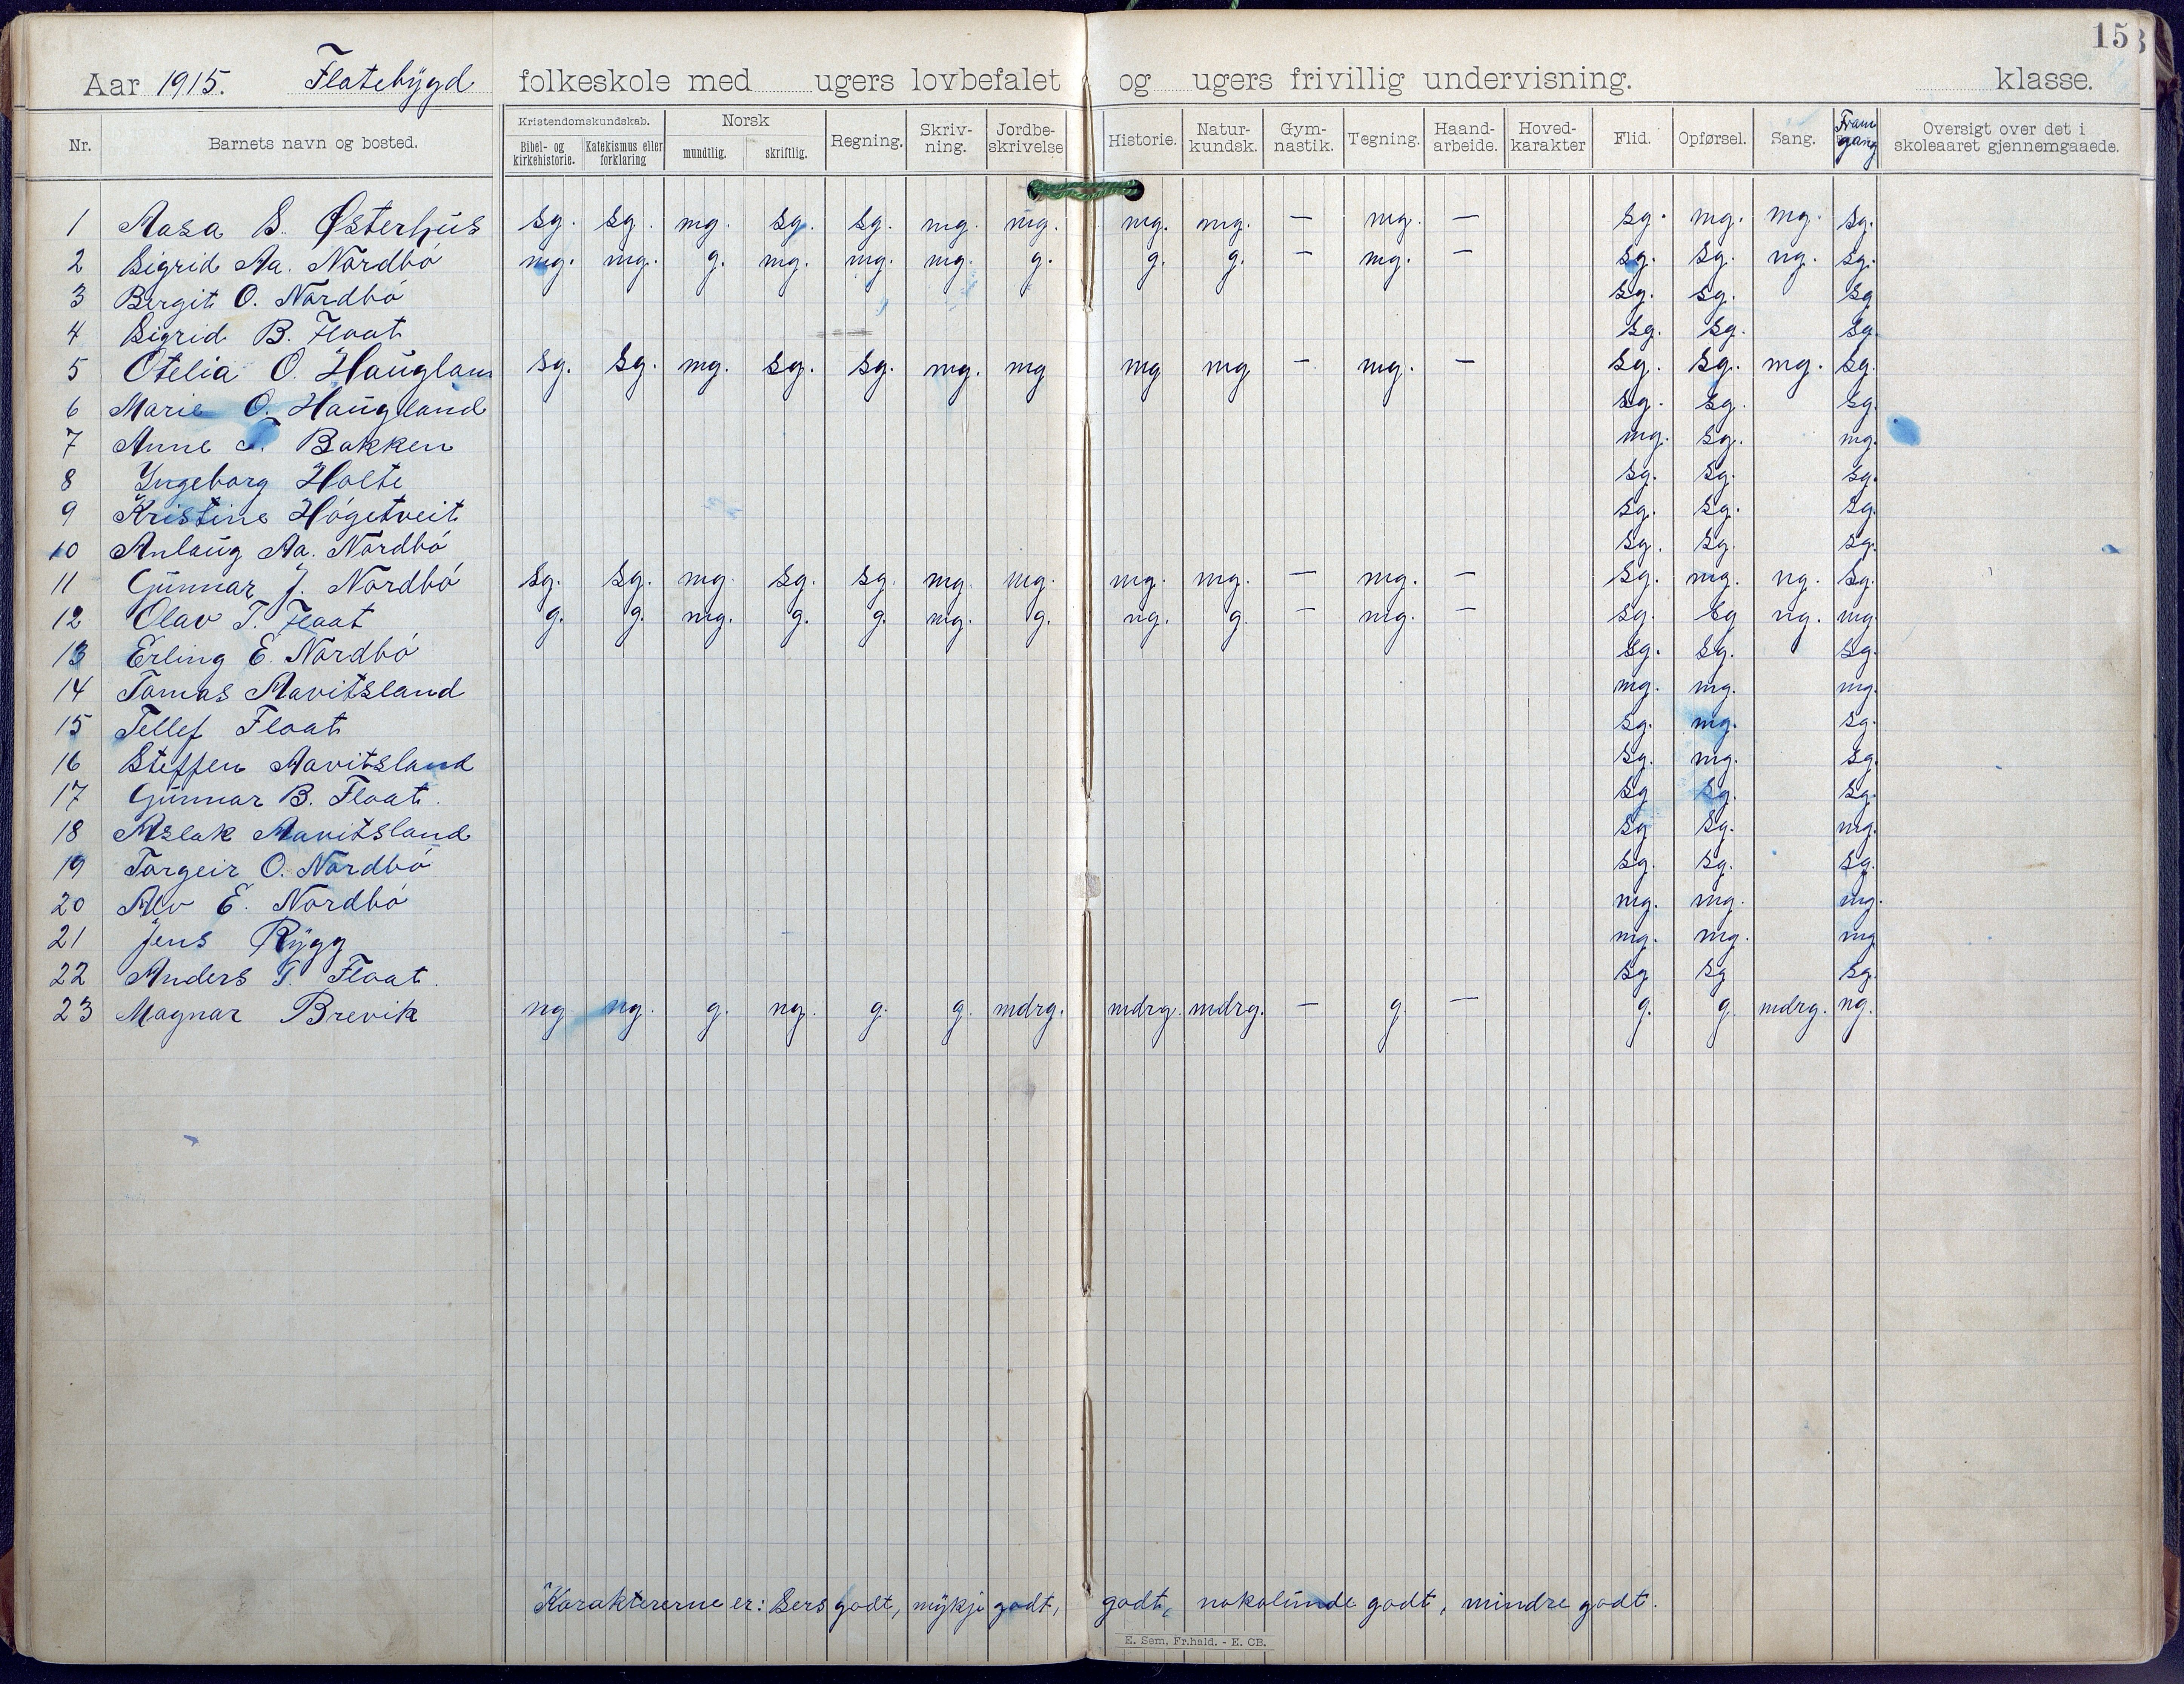 15
Aar 1915. Flatebygd folkeskole med ugers lovbefalet og ugers frivillig undervisning. klasse.
Nr. Barnets navn og bosted. Kristendomskundskab. Bibel- og kirkehistorie. Katekismus eller forklaring Norsk mundtlig. skriftlig. Regning. Skriv-ning. Jordbe-skrivelse Historie. Natur-kundsk. Gym-nastik. Tegning. Haand-arbeide. Hoved-karakter Flid. Opførsel. Sang. Fram gang Oversigt over det i skoleaaret gjennemgaaede.
1 Aasa S. Østerhus sg. sg. mg. sg. sg. mg. mg. mg. mg. — mg. — sg. mg. mg. sg.
2 Sigrid Aa. Nordbó mg. mg. g. mg. mg. mg. g. g. g. — mg. — sg. sg. ng. sg.
3 Bergit O. Nordbó sg. sg. sg
4 Sigrid B. Float sg. sg. sg.
5 Otelia O. Haugland sg. sg. mg. sg. sg. mg. mg mg mg — mg. — sg. sg. mg. sg.
6 Marie O. Haugland sg. sg. sg.
7 Anne T. Bakken mg. sg. mg.
8 Ingeborg Holte sg. sg. sg.
9 Kristine Hógetveit sg. sg. sg.
10 Anlaug Aa. Nordbó sg. sg. sg.
11 Gunnar J. Nordbó sg. sg. mg. sg. sg. mg. mg. mg. mg. — mg. — sg. mg. ng. sg.
12 Olav T. Float g. g. mg. g. g. mg. g. ng. g. — mg. — sg. sg ng. mg.
13 Erling E. Nordbó sg. sg. sg.
14 Tomas Aavitsland mg. mg. mg.
15 Tellef Float sg. mg. sg.
16 Steffen Aavitsland sg. mg. sg.
17 Gunnar B. Float. sg sg. sg.
18 Aslak Aavitsland sg sg. mg.
19 Torgeir O. Nordbó sg. sg. sg.
20 Alv E. Nordbó mg. mg. mg.
21 Jens Rygg mg. mg. mg
22 Anders T. Float. sg sg sg.
23 Magnar Brevik ng. ng. g. ng. g. g. mdrg. mdrg. mdrg. — g. — g. g. mdrg. ng.
Karaktererne er: Sers godt, mykje godt, godt, nokolunde godt, mindre godt.
E. Sem, Fr.hald. - E. CB.